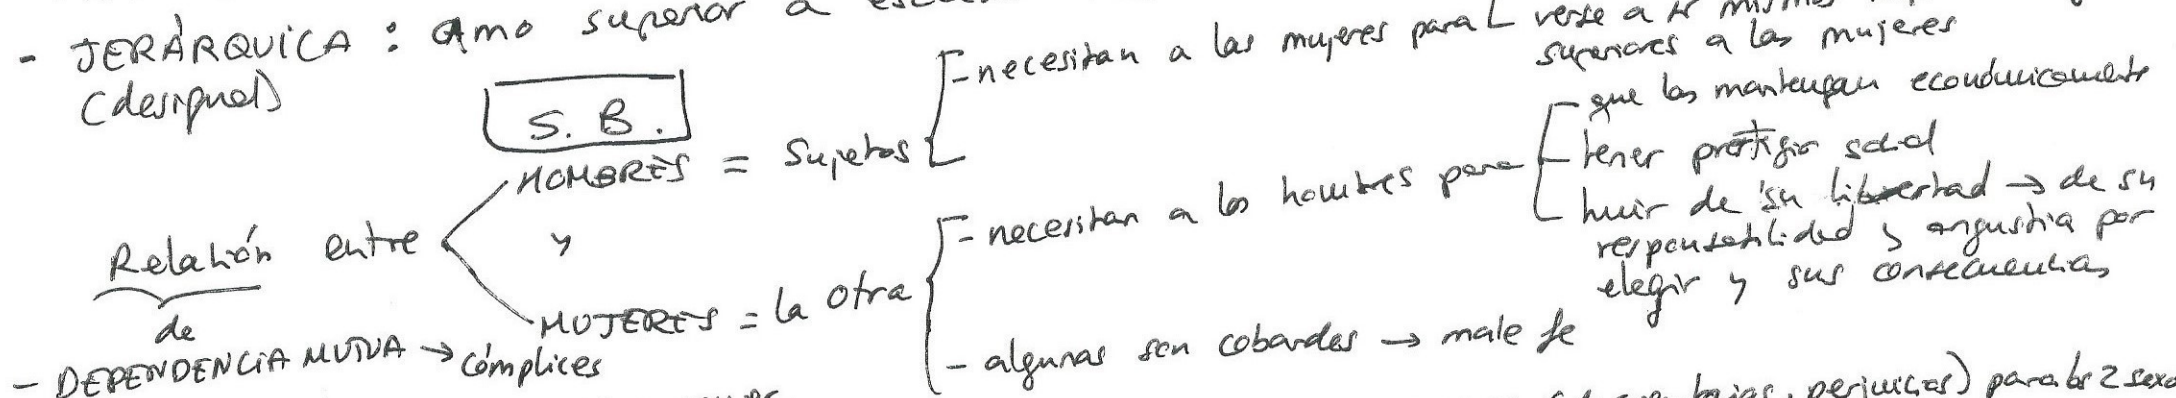 - JERÁRQUICA : Amo superior a
(desigual)
S. B.
Relación entre
HOMBRES = Sujetos
- necesitan a las mujeres para verse a sí mismos
superiores a las mujeres
y
MUJERES = la otra
- necesitan a los hombres para
- que las mantengan económicamente
- tener prestigio social
huir de su libertad → de su
responsabilidad y angustia por
elegir y sus consecuencias
- algunas son cobardes → mala fe
de
- DEPENDENCIA MUTUA → cómplices
perjuicios) para los 2 sexo